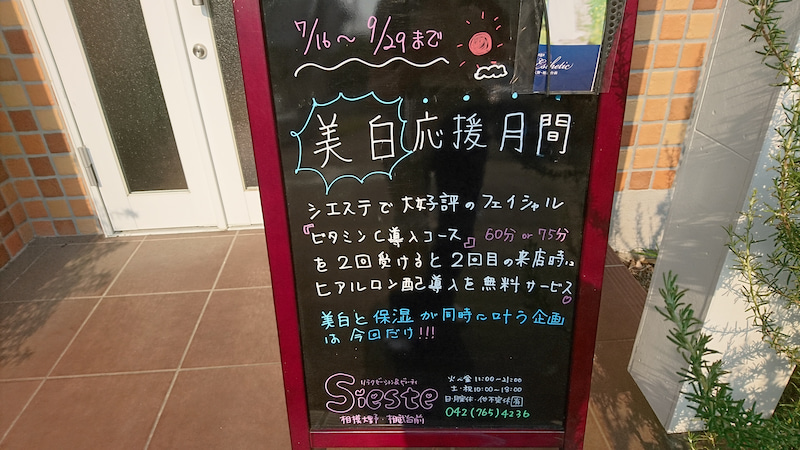 7/16〜9/29まで
Esthetic
美白応援月間
シエステで大好評のフェイシャル
『ビタミンC導入コース』60分or75分
を2回受けると2回目の来店時に
ヒアルロン酸導入を無料サービス
美白と保湿が同時に叶う企画
は今回だけ!!!
リラクゼーション&ビューティ
Sieste
相模大野・相武台前
火〜金 11:00〜21:00
土・祝 10:00〜18:00
日・月定休・他不定休有
042(765)4236